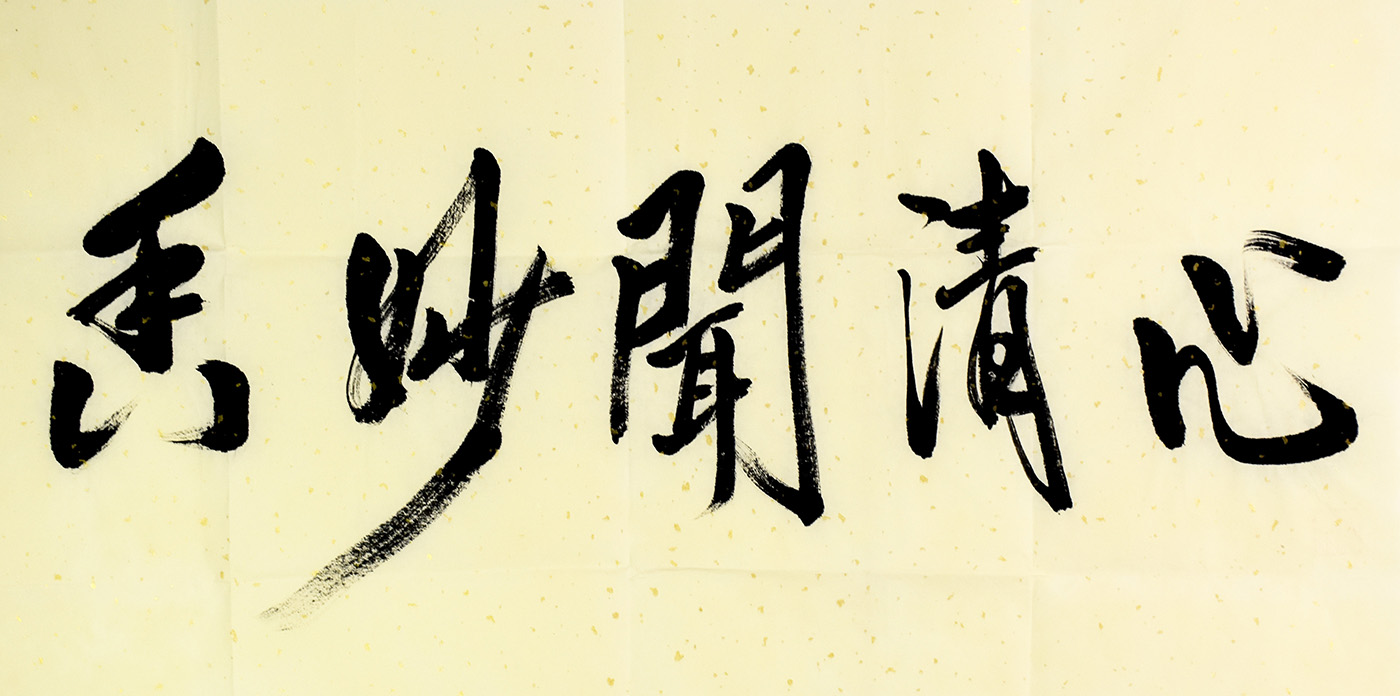 心清聞妙香